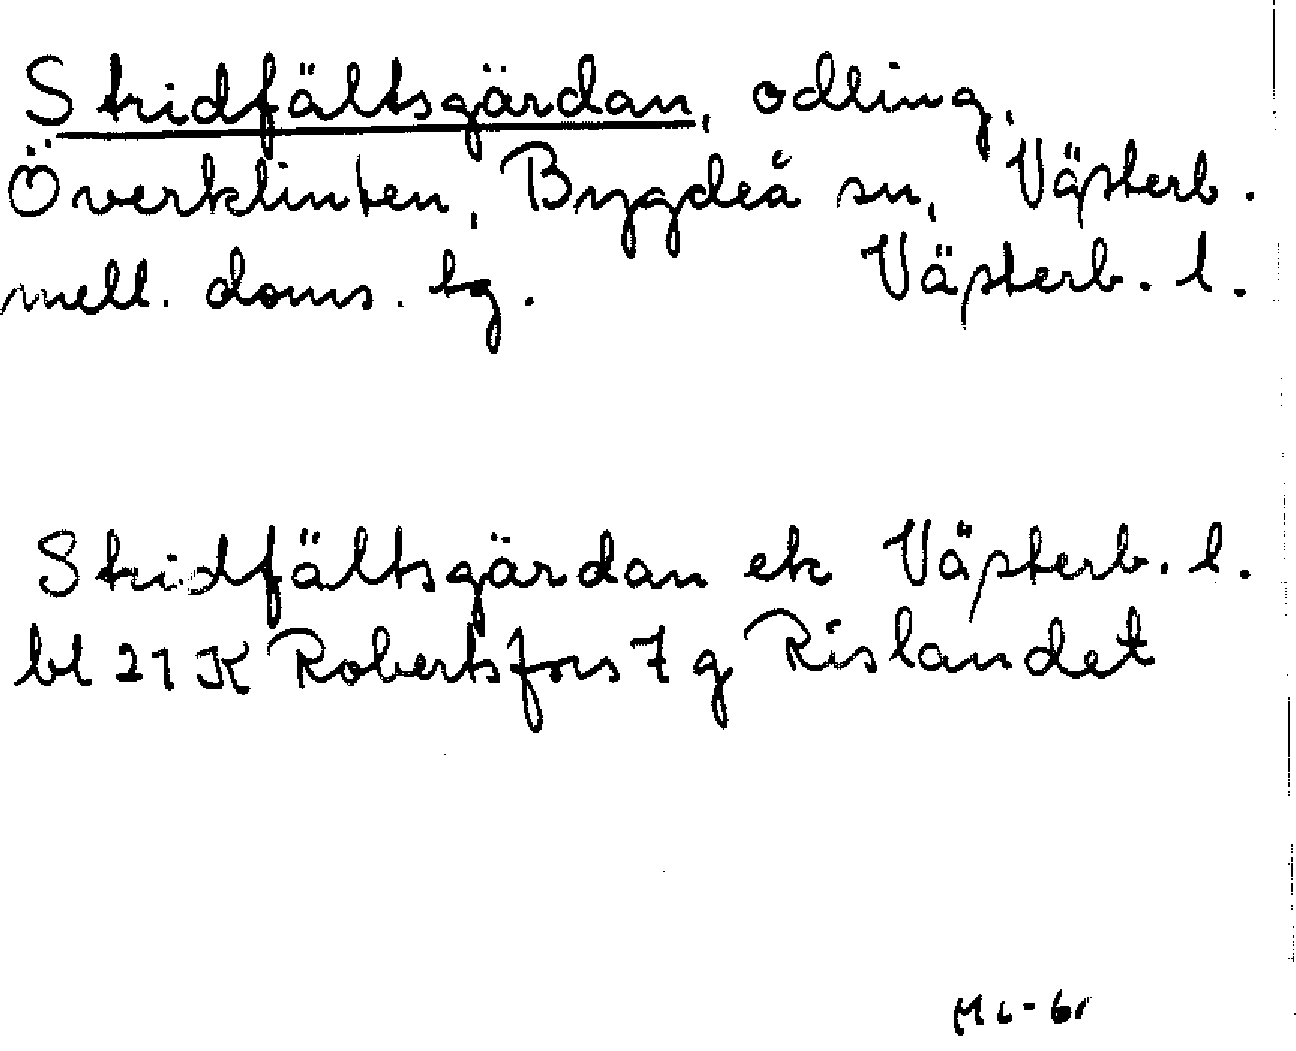 Stridfältsgärdan, odling,
Överklinten, Bygdeå sn, Västerb.
mell. doms. tg. Västerb. l.
Stridfältsgärdan ek Västerb. l.
bl 21 K Robertsfors 7 g Rislandet